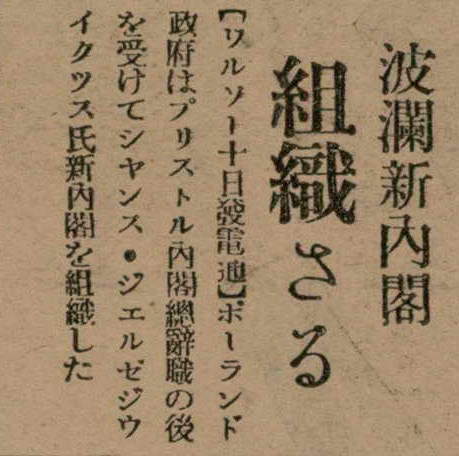 波瀾新內閣
組織さる
【ワルソー十日發電通】ポーランド
政府はプリストル內閣總辭職の後
を受けてシヤンス・ジエルゼジウ
イクツス氏新內閣を組織した